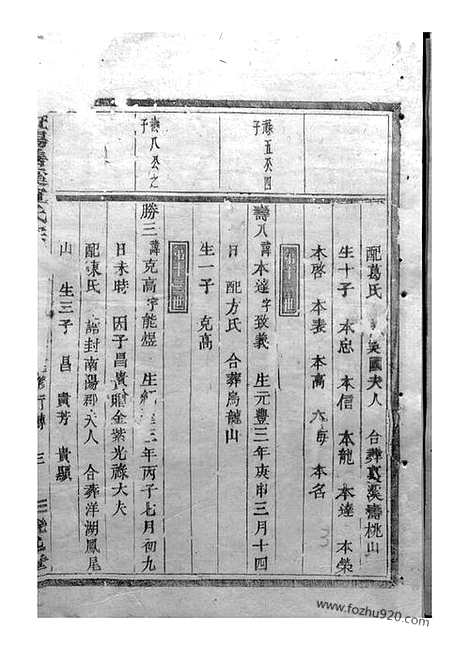 配葛氏 國夫人 合葬 溪 桃山
生十子 本忠 本信 本龍 本達 本榮
本啓 本表 本高 六海 本名
第十二世
祿五公四子
壽八 諱本達 字致義 生元豐三年庚申三月十四
日 配方氏 合葬烏龍山
生一子 克高
第十三世
壽八公之子
勝三 諱克高 字能煜 生紹 三年丙子七月初九
日未時 因子昌貴贈金紫光祿大夫
配東氏 誥封南陽郡夫人 合葬洋湖鳳尾
山 生三子 昌 貴芳 貴顯
www.fozhu920.com